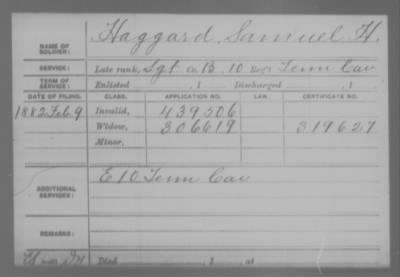 NAME OF SOLDIER: Haggard, Samuel H.
SERVICE: Late rank, Sgt Co. B, 10 Reg't Tenn Cav
TERM OF SERVICE: Enlisted , 1 Discharged , 1
DATE OF FILING. CLASS. APPLICATION NO. LAW. CERTIFICATE NO.
1882 Feb 9 Invalid, 439506
Widow, 306619 319627
Minor,
ADDITIONAL SERVICES: E 10 Tenn Cav
REMARKS:
Died , 1 , at